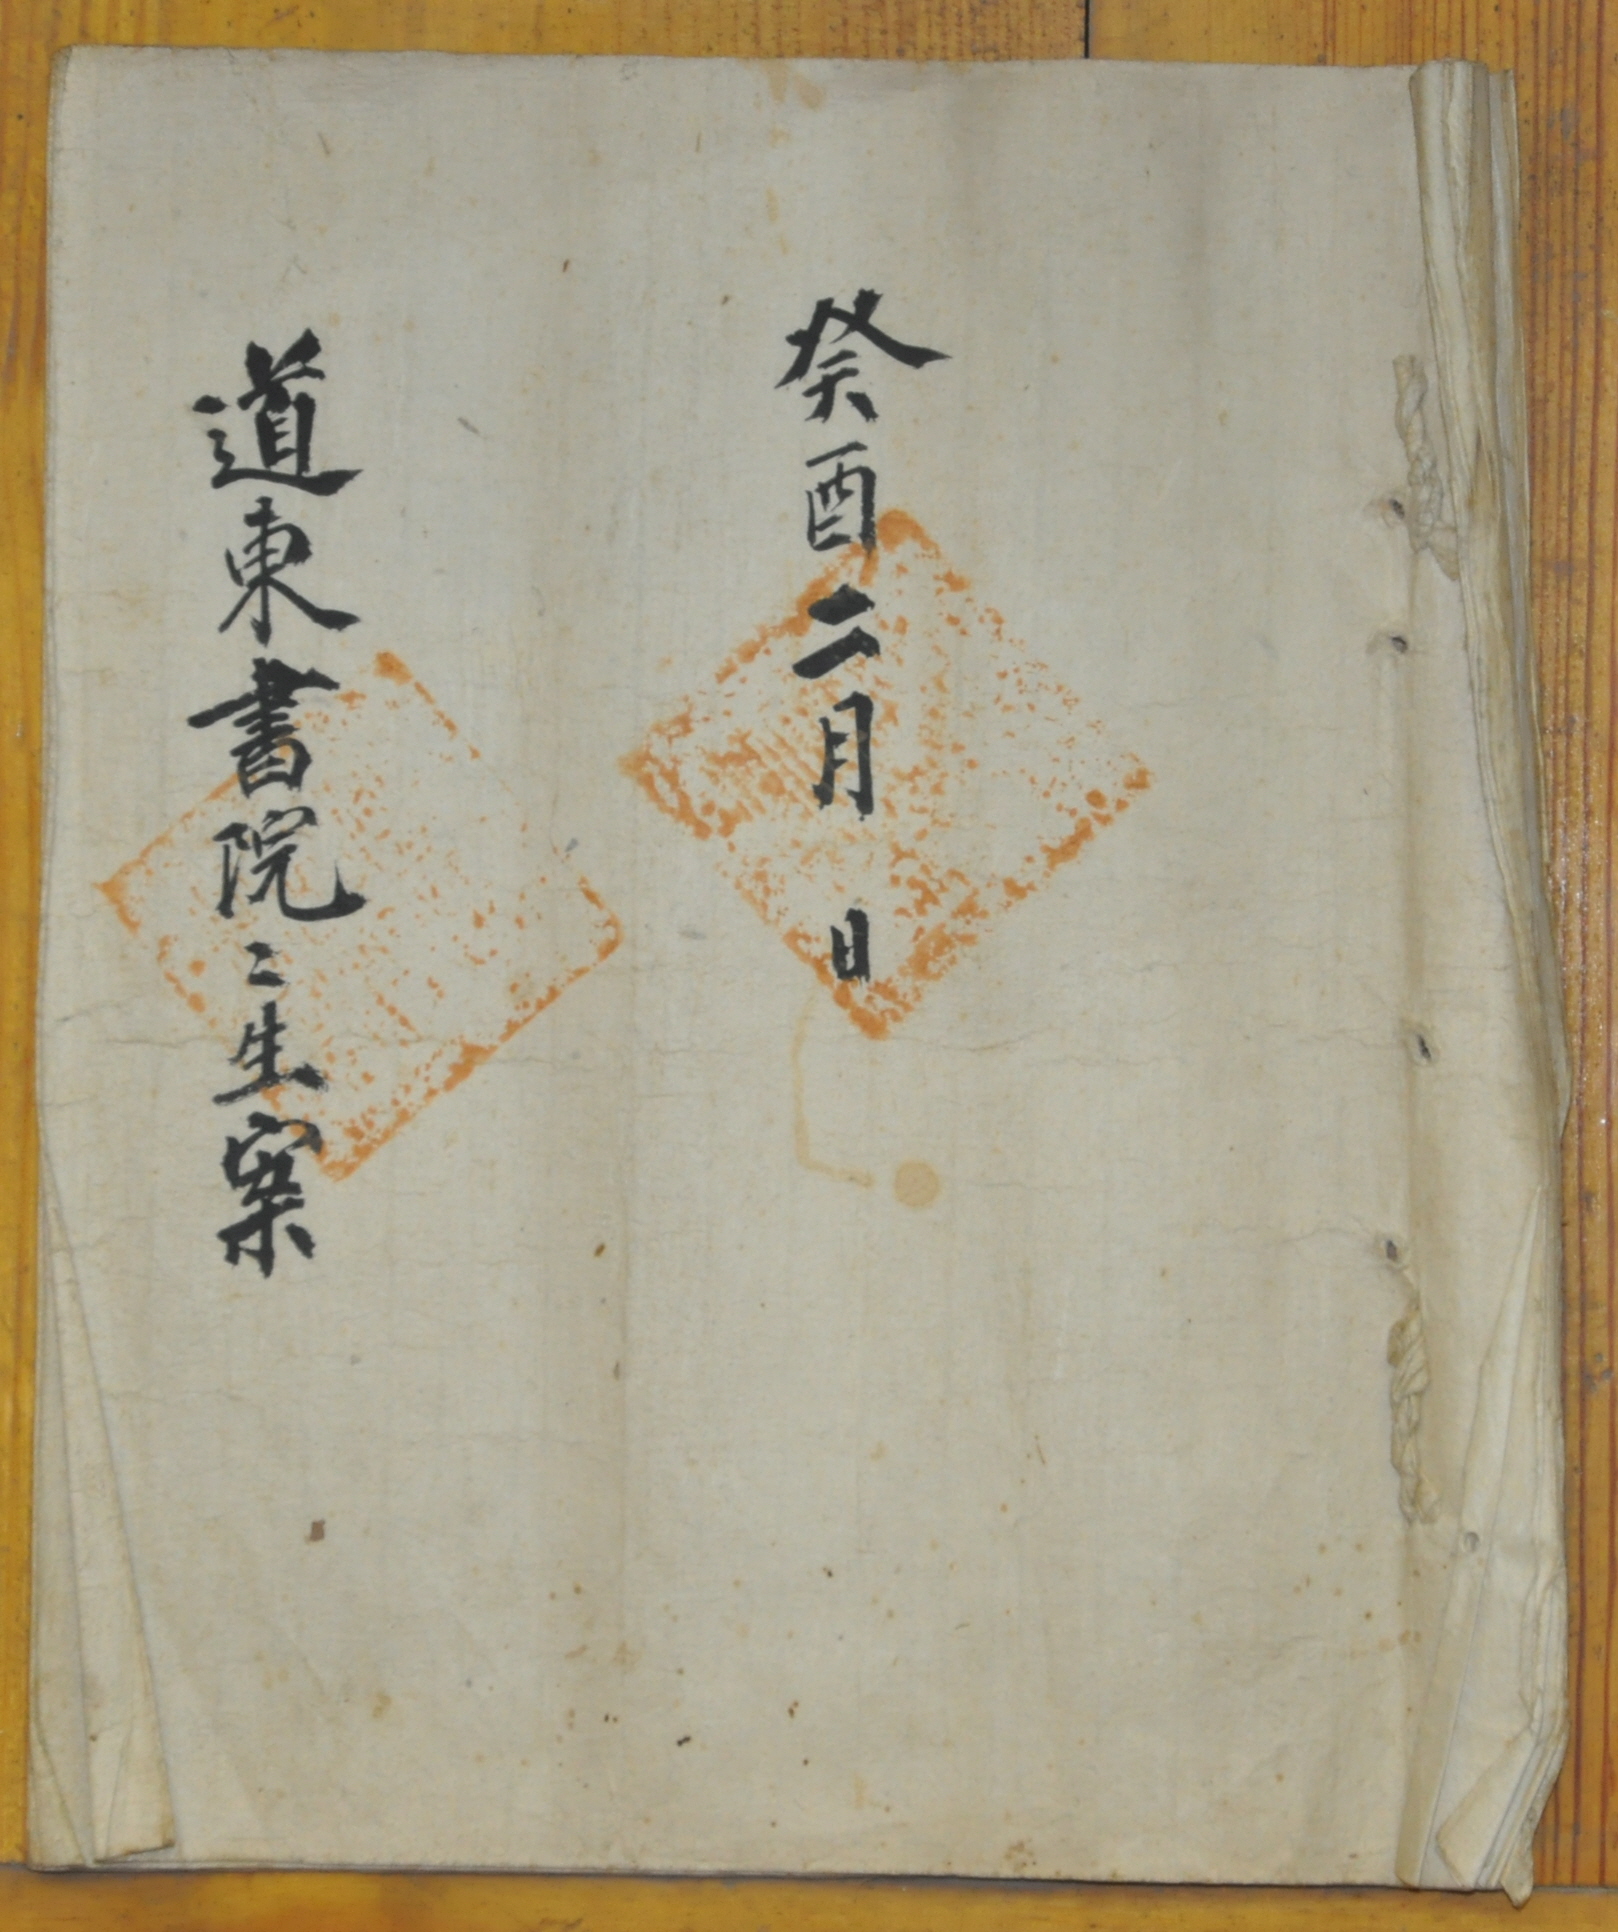 癸酉二月 日
道東書院〻生案